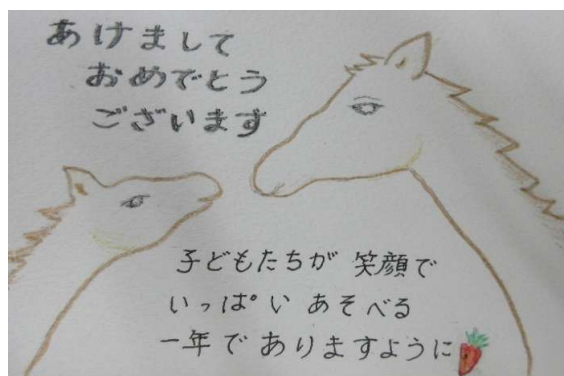 あけまして
おめでとう
ございます
子どもたちが 笑顔で
いっぱい あそべる
一年で ありますように